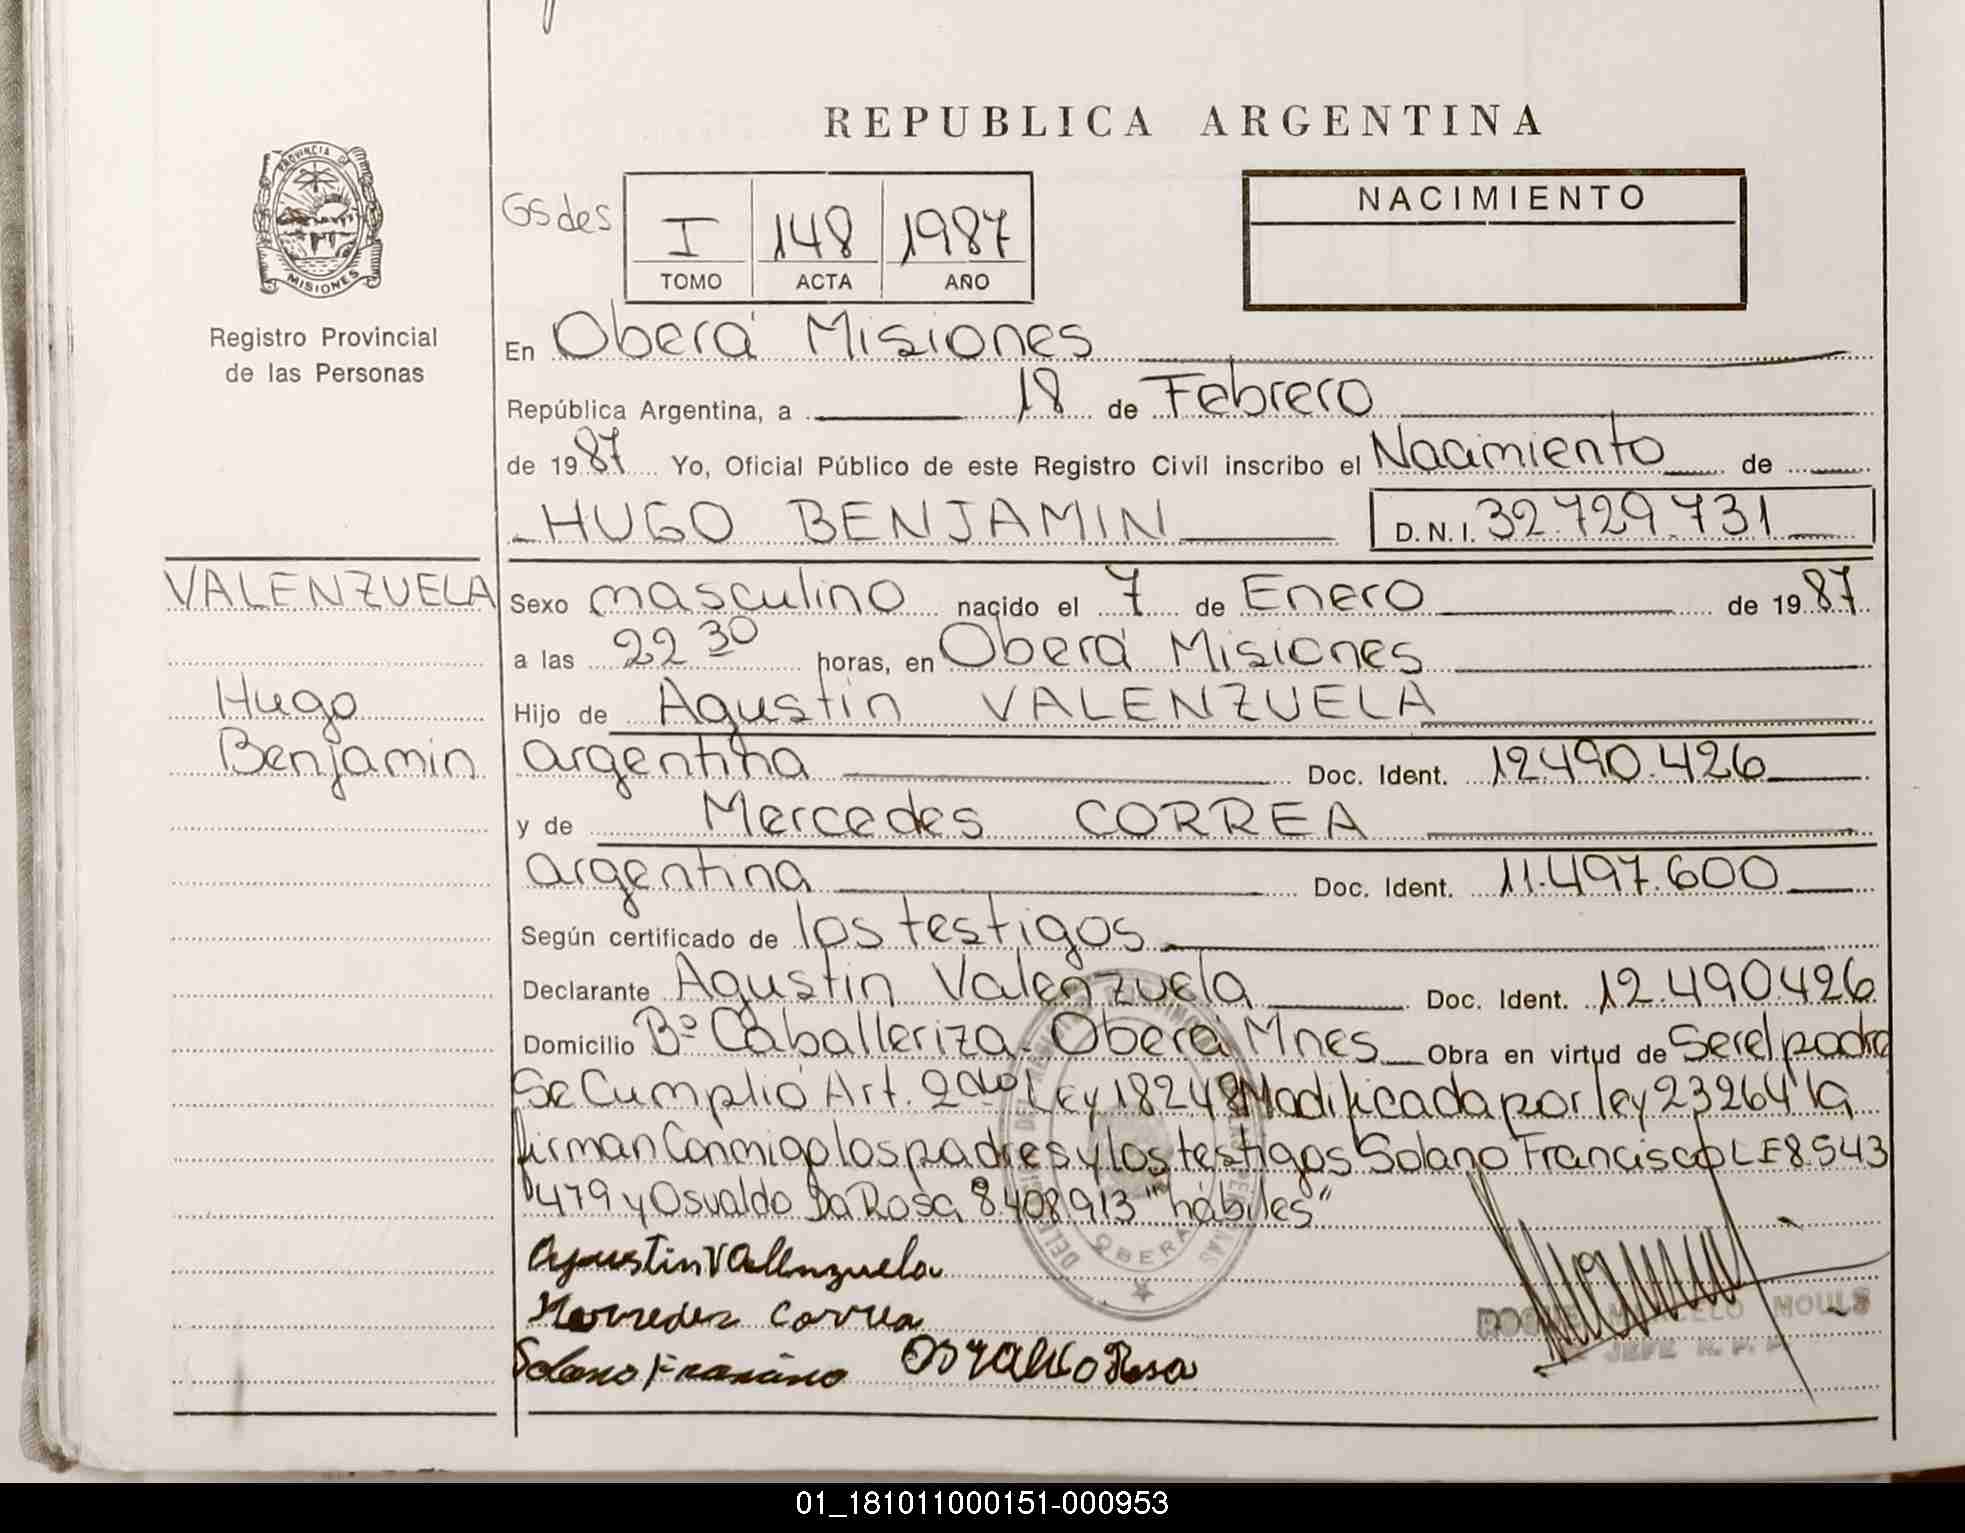 REPUBLICA ARGENTINA
PROVINCIA D
MISIONES
Registro Provincial
de las Personas
GSdes
I 148 1987
TOMO ACTA AÑO
NACIMIENTO
En Oberá Misiones
República Argentina, a 18 de Febrero
de 1987 Yo, Oficial Público de este Registro Civil inscribo el Nacimiento de
HUGO BENJAMIN D.N.I. 32.729.731
VALENZUELA
Hugo
Benjamin
Sexo masculino nacido el 7 de Enero de 1987
a las 22 30 horas, en Oberá Misiones
Hijo de Agustin VALENZUELA
argentina Doc. Ident. 12490.426
y de Mercedes CORREA
argentina Doc. Ident. 11.497.600
Según certificado de los testigos
Declarante Agustin Valenzuela Doc. Ident. 12.490426
Domicilio Bº Caballeriza. Oberá Mnes Obra en virtud de Ser el padre
Se Cumplió Art. 2do Ley 18248 Modificada por ley 23264
firman Conmigo los padres y los testigos Solano Francisco LE 8.543
479 y Osvaldo Da Rosa 8408913 "hábiles"
OBERA
Agustin Vallenzuela
Mercedez Correa
Solano Francisco Osvaldo Rosa
MOULS
JEFE R. P. P.
01_181011000151-000953